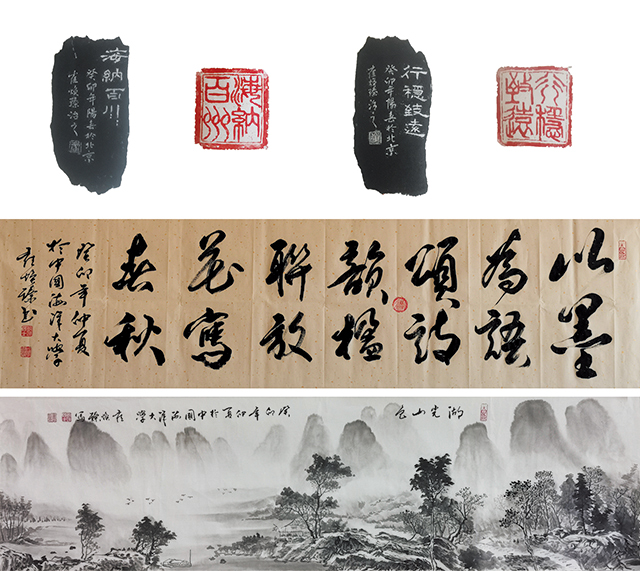 海納百川
癸卯年陽春於北京
海納
百川
行穩致遠
癸卯年陽春於北京
行穩
致遠
以墨
為語
頌詩
韻楹
聯放
花寫
春秋
癸卯年仲夏
於中國海洋大學
書
湖光山色
癸卯年仲夏於中國海洋大學
寫